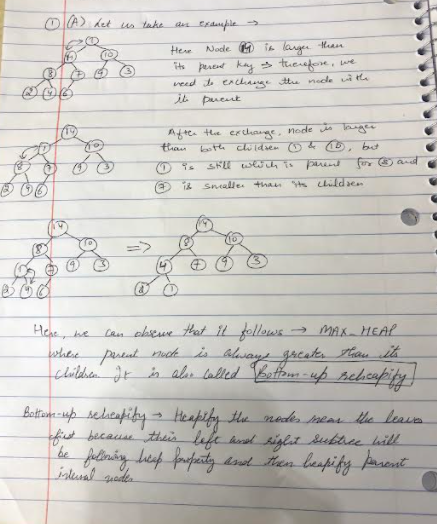 ① (A) Let us take an example →
1
14 10
8 7 9 3
2 4 6
Here Node 14 is larger than
its parent key → therefore, we
need to exchange the node with
its parent
14
1 10
8 7 9 3
2 4 6
After the exchange, node is larger
than both children ① & ⑩, but
① is still which is parent for ⑧ and
⑦ is smaller than its children
14 14
8 10 ⇒ 8 10
1 7 9 3 4 7 9 3
2 4 6 1
Here, we can observe that it follows → MAX_HEAP
where parent node is always greater than its
children It is also called Bottom-up reheapify
Bottom-up reheapify → Heapify the nodes near the leaves
first because their left and right subtree will
be following heap property and then heapify parent
internal nodes